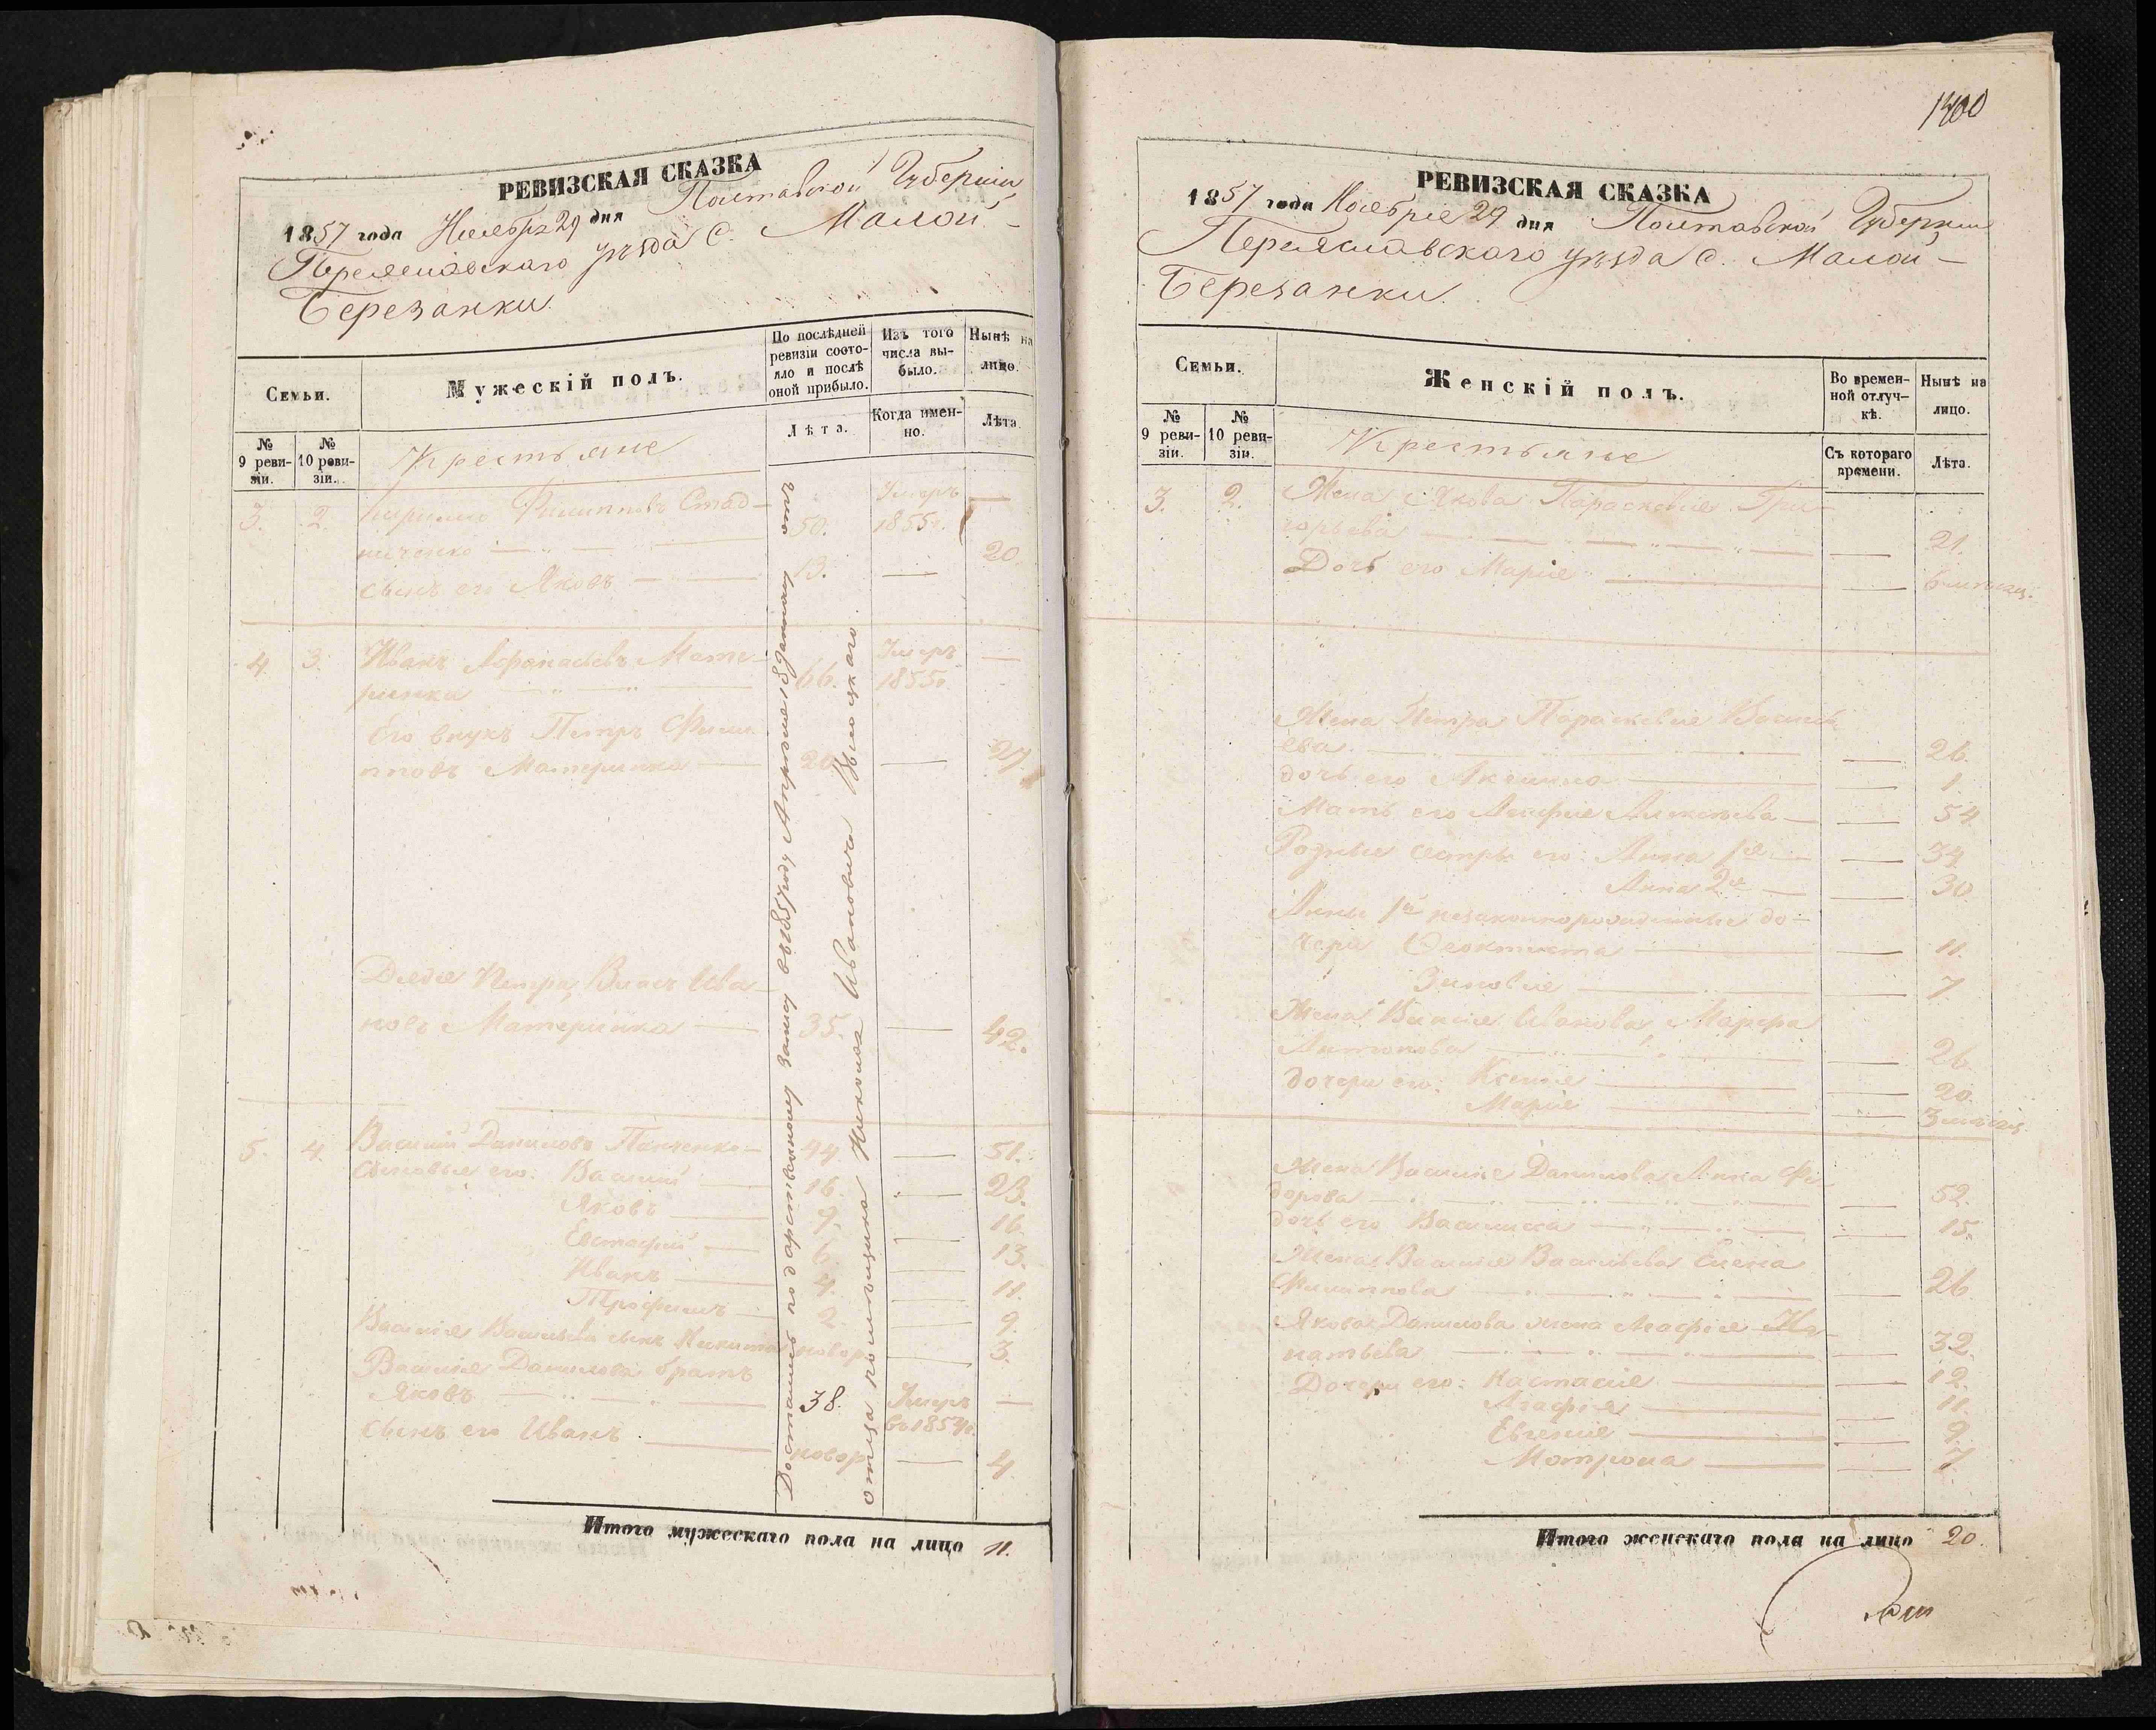 РЕВИЗСКАЯ СКАЗКА
1857 года Ноября 29 дня Полтавской Губернiи
Переяславскаго уѣзда С. Малой-
Березанки.
Семьи.
Мужескiй полъ.
По послѣдней ревизiи состо-
яло и послѣ
оной прибыло.
Изъ того
числа вы-
было.
Нынѣ на
лицо.
№
9 реви-
зiи.
№
10 реви-
зiи.
Крестьяне
Лѣта.
Когда имен-
но.
Лѣта.
3. 2. Филипповъ Стад-
ниченко 50. Умеръ 1855г. —
сынъ его Яковъ 13. — 20.
4. 3. Иванъ Афанасьевъ Мате-
ринка 66. Умеръ 1855г. —
Его внукъ Петръ Филип-
повъ Материнка 20. — 27.
Дядя Петра, Власъ Ива-
новъ Материнка 35. — 42.
5. 4. Василий Даниловъ Панченко 44. — 51.
Сыновья его: Василий 16. — 23.
Яковъ 9. — 16.
Евстафий 6. — 13.
Иванъ 4. — 11.
Трофимъ 2. — 9.
Василiя Васильева сынъ Никита новор. — 3.
Василiя Данилова братъ
Яковъ 38. Умеръ въ 1854г. —
Сынъ его Иванъ новор. — 4.
Достались по дарственному въ 1857 году Апреля 18 данному отъ
отца помѣщика Николая Ивановича
Итого мужескаго пола на лицо 11.
1400
РЕВИЗСКАЯ СКАЗКА
1857 года Ноября 29 дня Полтавской Губернiи
Переяславскаго уѣзда С. Малой-
Березанки.
Семьи.
Женскiй полъ.
Во времен-
ной отлуч-
кѣ.
Нынѣ на
лицо.
№
9 реви-
зiи.
№
10 реви-
зiи.
Крестьяне
Съ котораго
времени.
Лѣта.
3. 2. Жена Якова Параскевiя Гри-
горьева — 21.
Дочь его Марiя — 6 мѣсяц.
Жена Петра Параскевiя Василь
ева — 26.
дочь его Акелина — 1
Мать его Алексѣева — 54
Родные сестры его: Анна 1я — 34
Анна 2я — 30
Анны 1й незаконнорожденные до-
чери Феоктиста — 11.
Зиновiя — 7.
Жена Власа Иванова Марфа
Антонова — 26.
дочери его: Ксенiя — 20.
Марiя — 3 мѣсяц.
Жена Василiя Данилова Анна Фе
дорова — 52.
дочь его Василиса — 15.
Жена Василiя Васильева Елена
Филиппова — 26.
Якова Данилова жена Агафiя Иг-
натьева — 32.
Дочери его: Настасiя — 12.
Агафiя — 11.
Евгенiя — 9.
Мотрона — 7.
Итого женскаго пола на лицо 20.